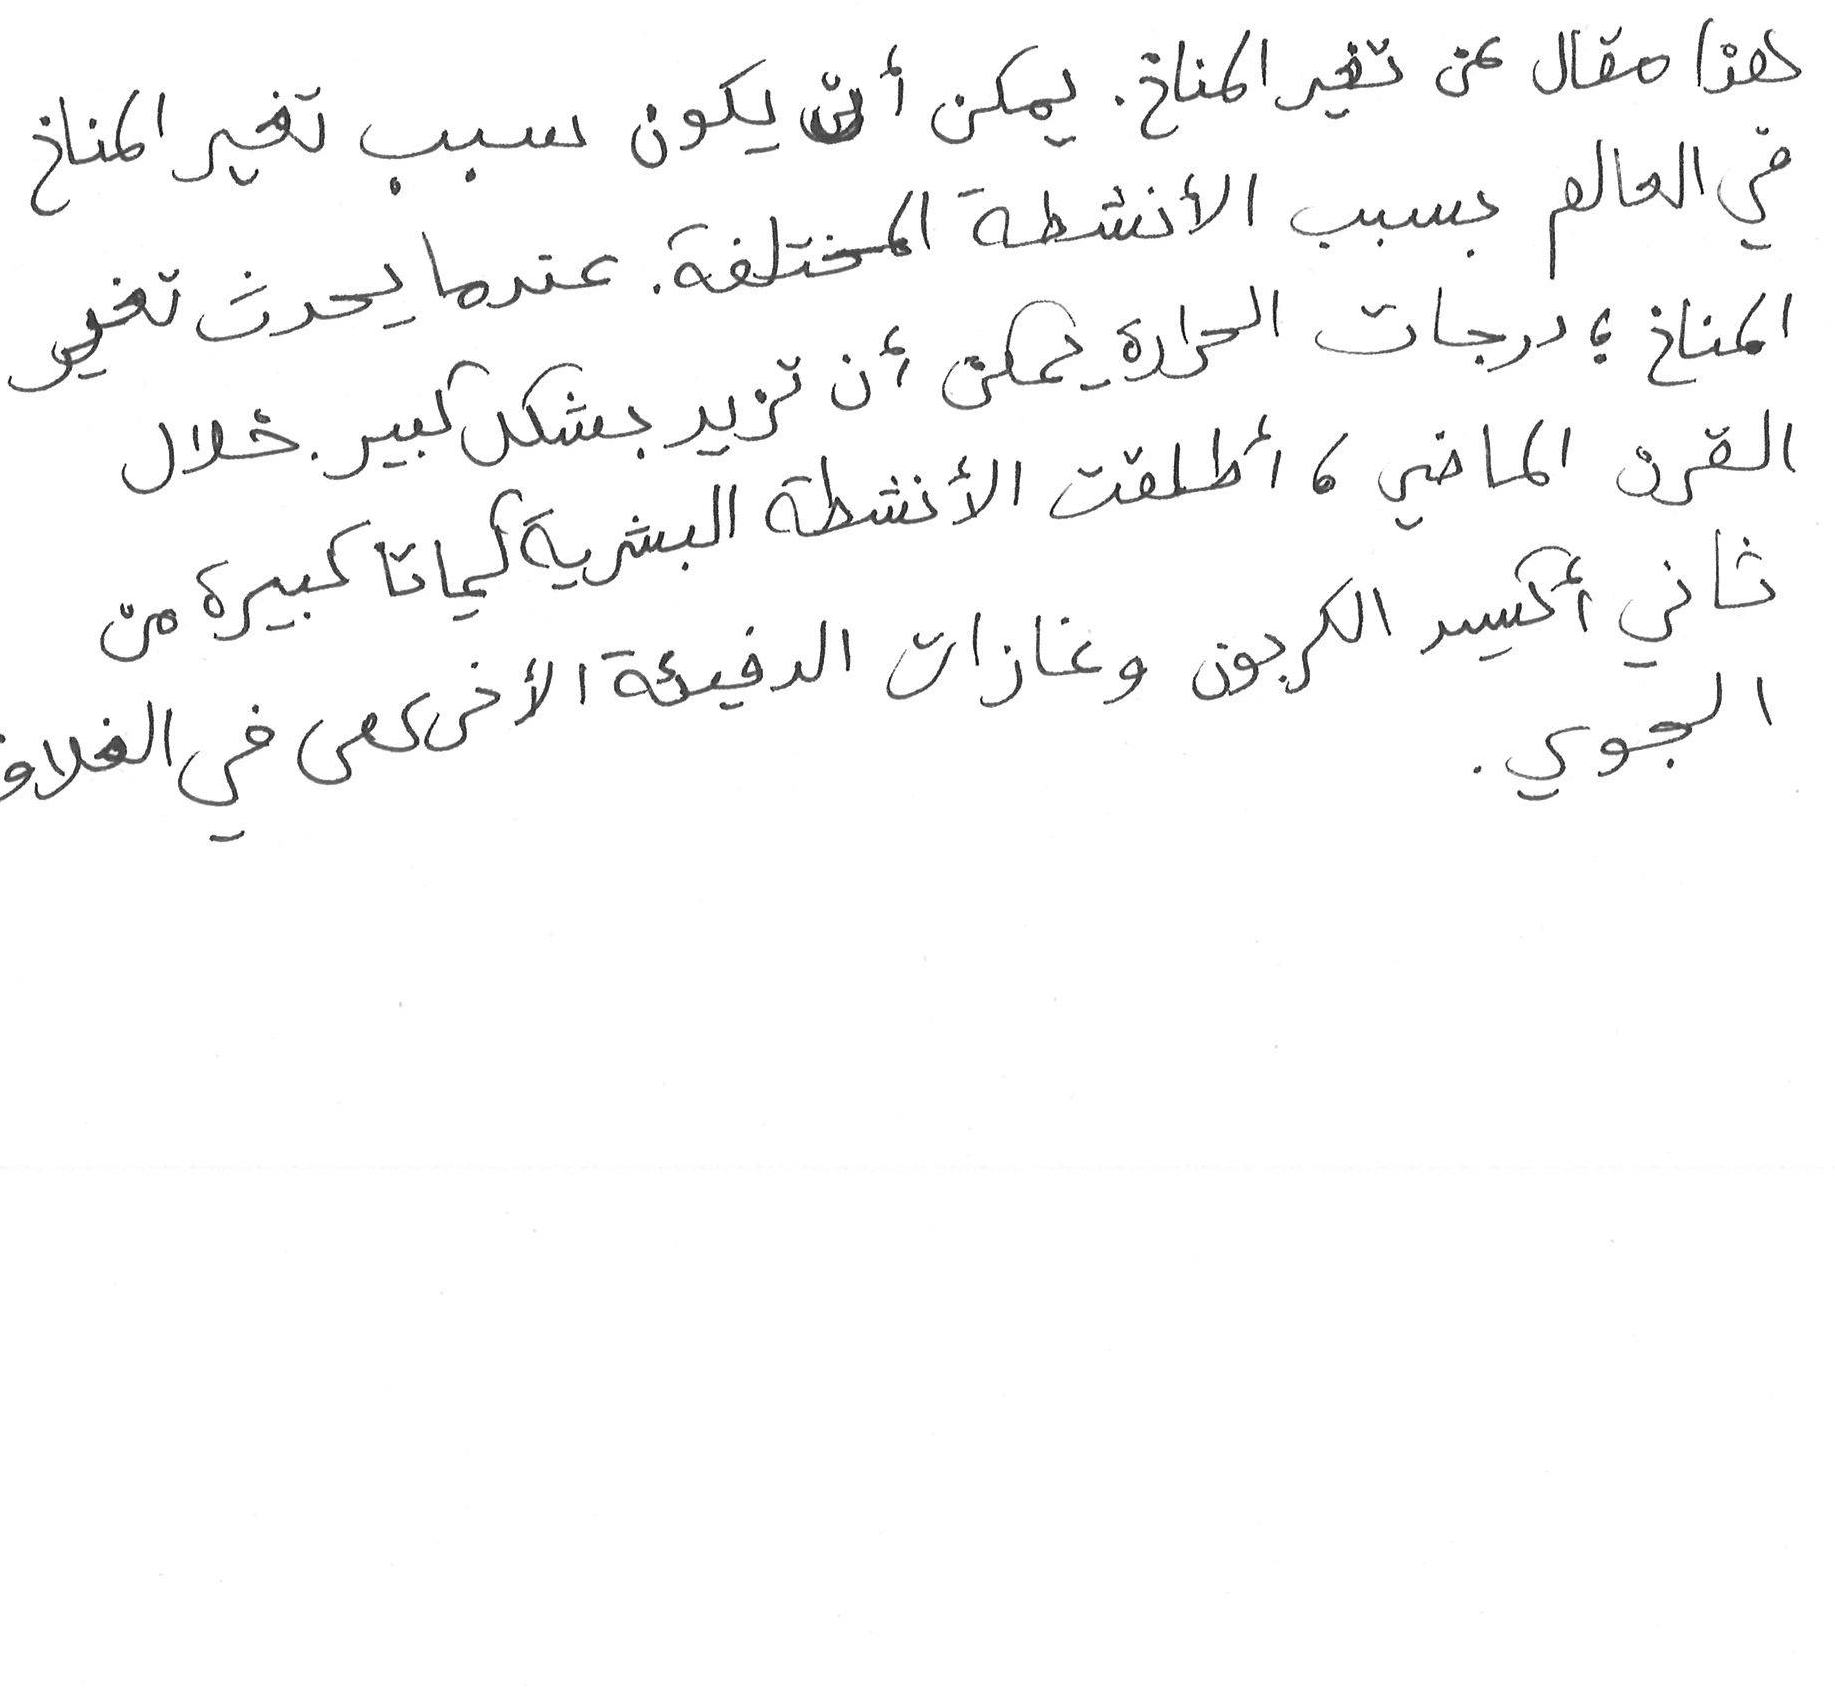 هذا مقال عن تغير المناخ. يمكن أن يكون سبب تغير المناخ
في العالم بسبب الأنشطة المختلفة. عندما يحدث تغير
المناخ، درجات الحرارة يمكن أن تزيد بشكل كبير. خلال
القرن الماضي، أطلقت الأنشطة البشرية كمياتا كبيرة من
ثاني أكسيد الكربون وغازات الدفيئة الأخرى في الغلاف
الجوي.